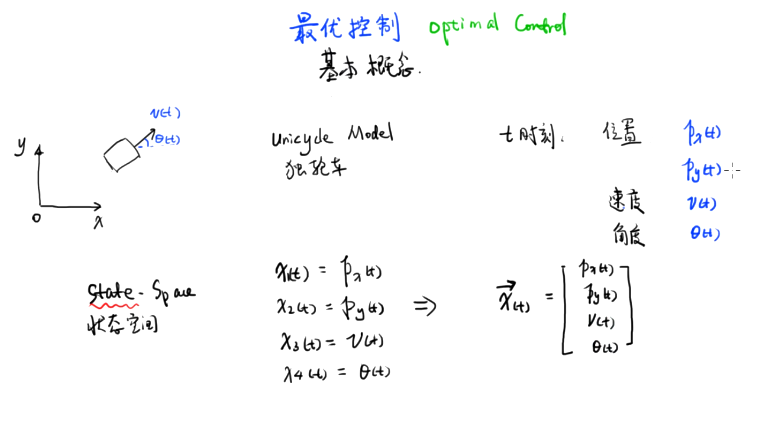 最优控制 optimal Control
基本概念.
v(t)
θ(t)
y
0
x
Unicycle Model
独轮车
t时刻: 位置 px(t)
py(t)
速度 v(t)
角度 θ(t)
State-Space
状态空间
x1(t) = px(t)
x2(t) = py(t) ⇒
x3(t) = v(t)
x4(t) = θ(t)
x⃗(t) = [px(t)
py(t)
v(t)
θ(t)]